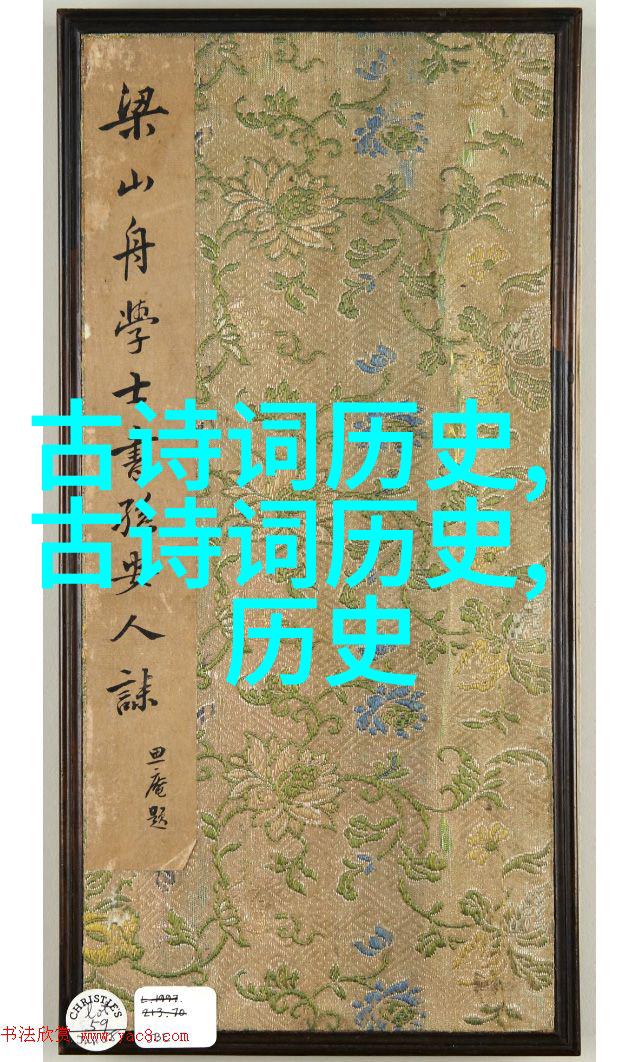 梁山舟學士書孫安人誄
思庵題
古诗词历史,
古诗词历史,
历史
CHRISTIE'S
Lot
59
L.1997.
213.70
书法欣赏 www.yac8.com